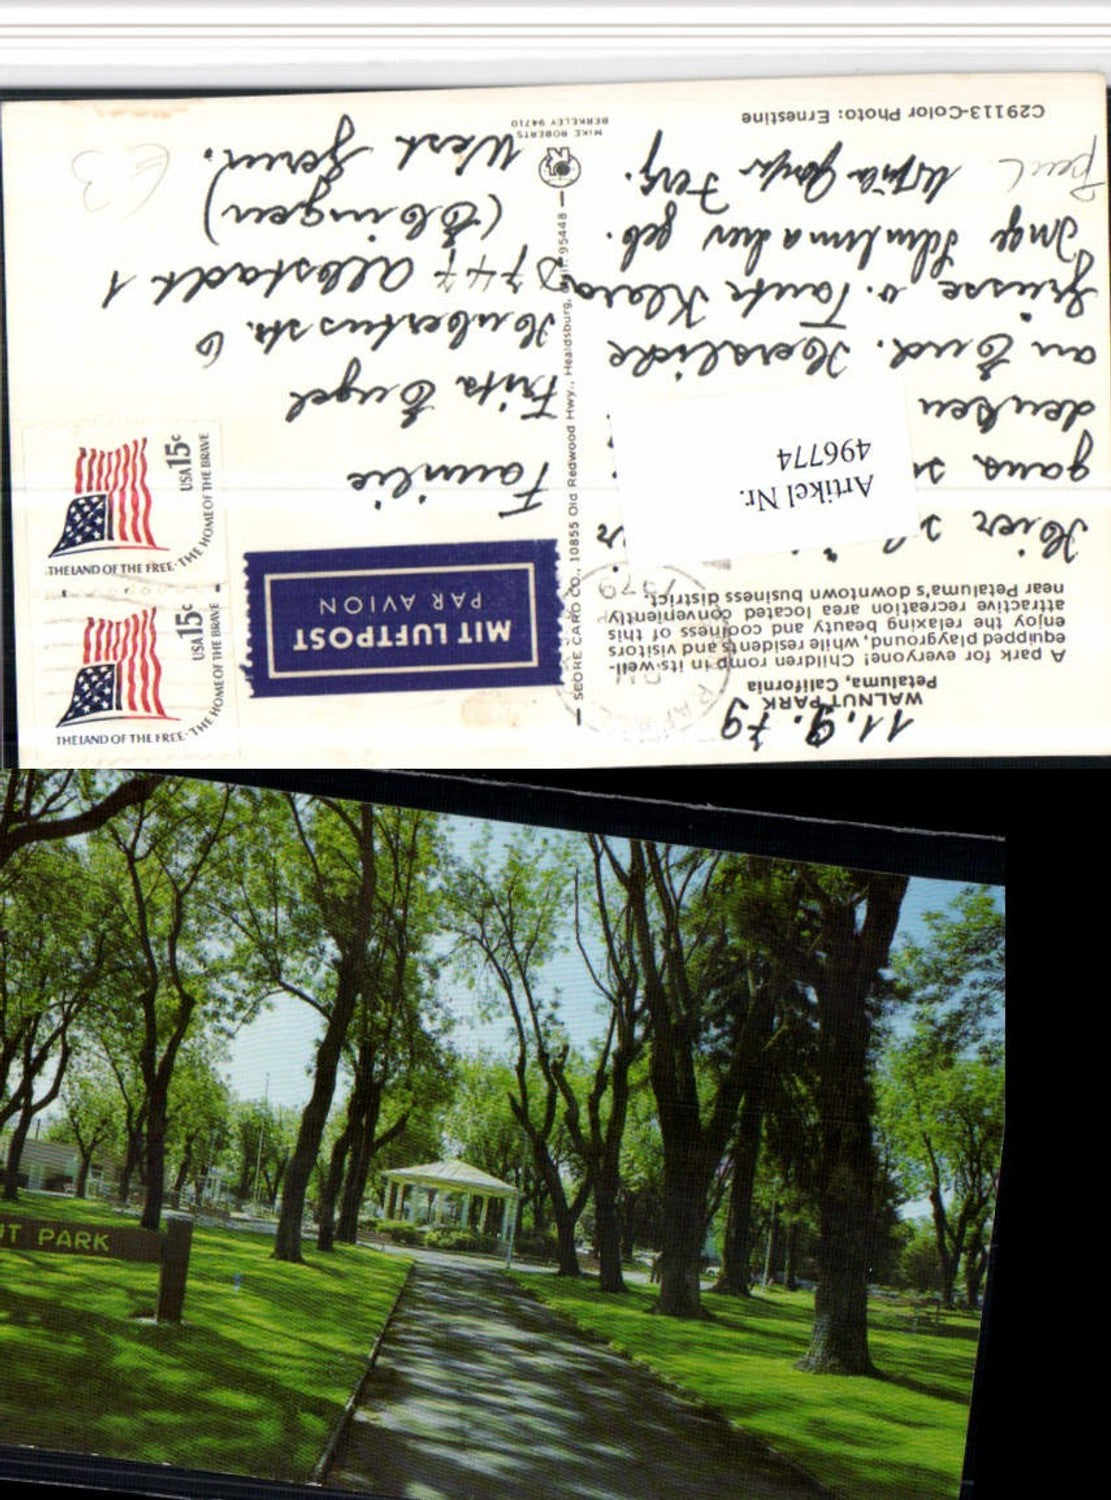 11.9.79
WALNUT PARK
Petaluma, California
A park for everyone! Children romp in its well-
equipped playground, while residents and visitors
enjoy the relaxing beauty and coolness of this
attractive recreation area located conveniently
near Petaluma's downtown business district.
Hier
ganz
denken
an Euch. Herzliche
Grüsse, v. Tante Klara
Inge Schuhmacher geb.
C29113-Color Photo: Ernestine
Artikel Nr.
496774
1979
PM
SCORE CARD CO., 10855 Old Redwood Hwy., Healdsburg, Calif. 95448
MIKE ROBERTS
BERKELEY 94710
MIT LUFTPOST
PAR AVION
THE LAND OF THE FREE · THE HOME OF THE BRAVE
USA 15c
THE LAND OF THE FREE · THE HOME OF THE BRAVE
USA 15c
Familie
Fritz Engel
Hubertusstr. 6
D 747 Albstadt 1
(Ebingen)
West Germ.
E3
UT PARK